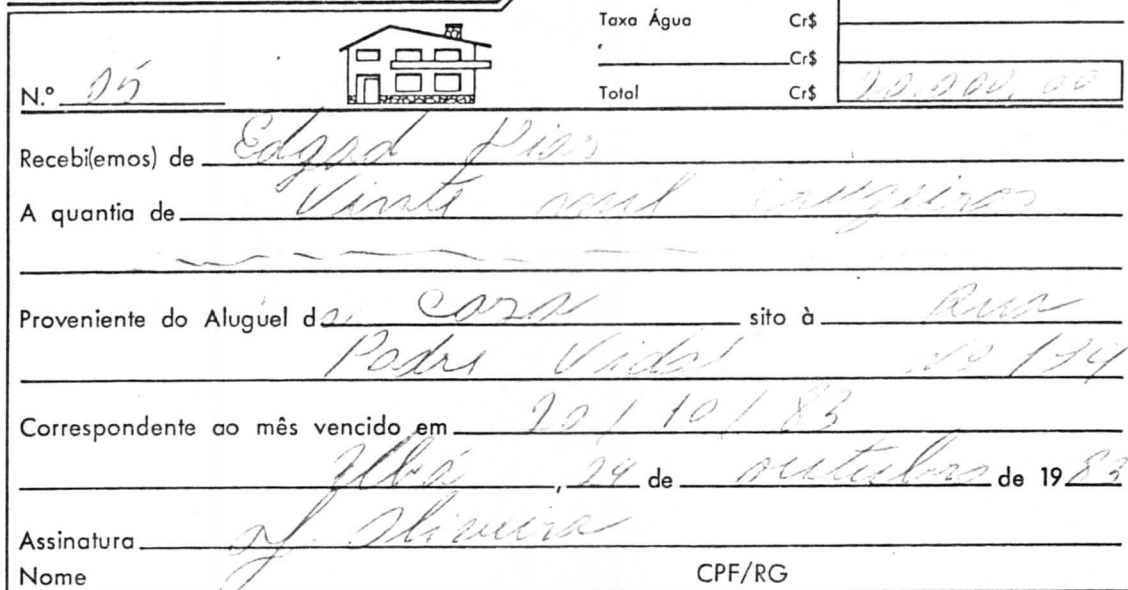 Taxa Água Cr$
Cr$
N.º 05
Total Cr$ 20.000,00
Recebi(emos) de Edgad Dias
A quantia de Vinte mil cruzeiros
Proveniente do Aluguel da Casa sito à Rua
Padre Vidal Nº 134
Correspondente ao mês vencido em 20/10/83
Ubá, 24 de outubro de 1983
Assinatura Oliveira
Nome CPF/RG